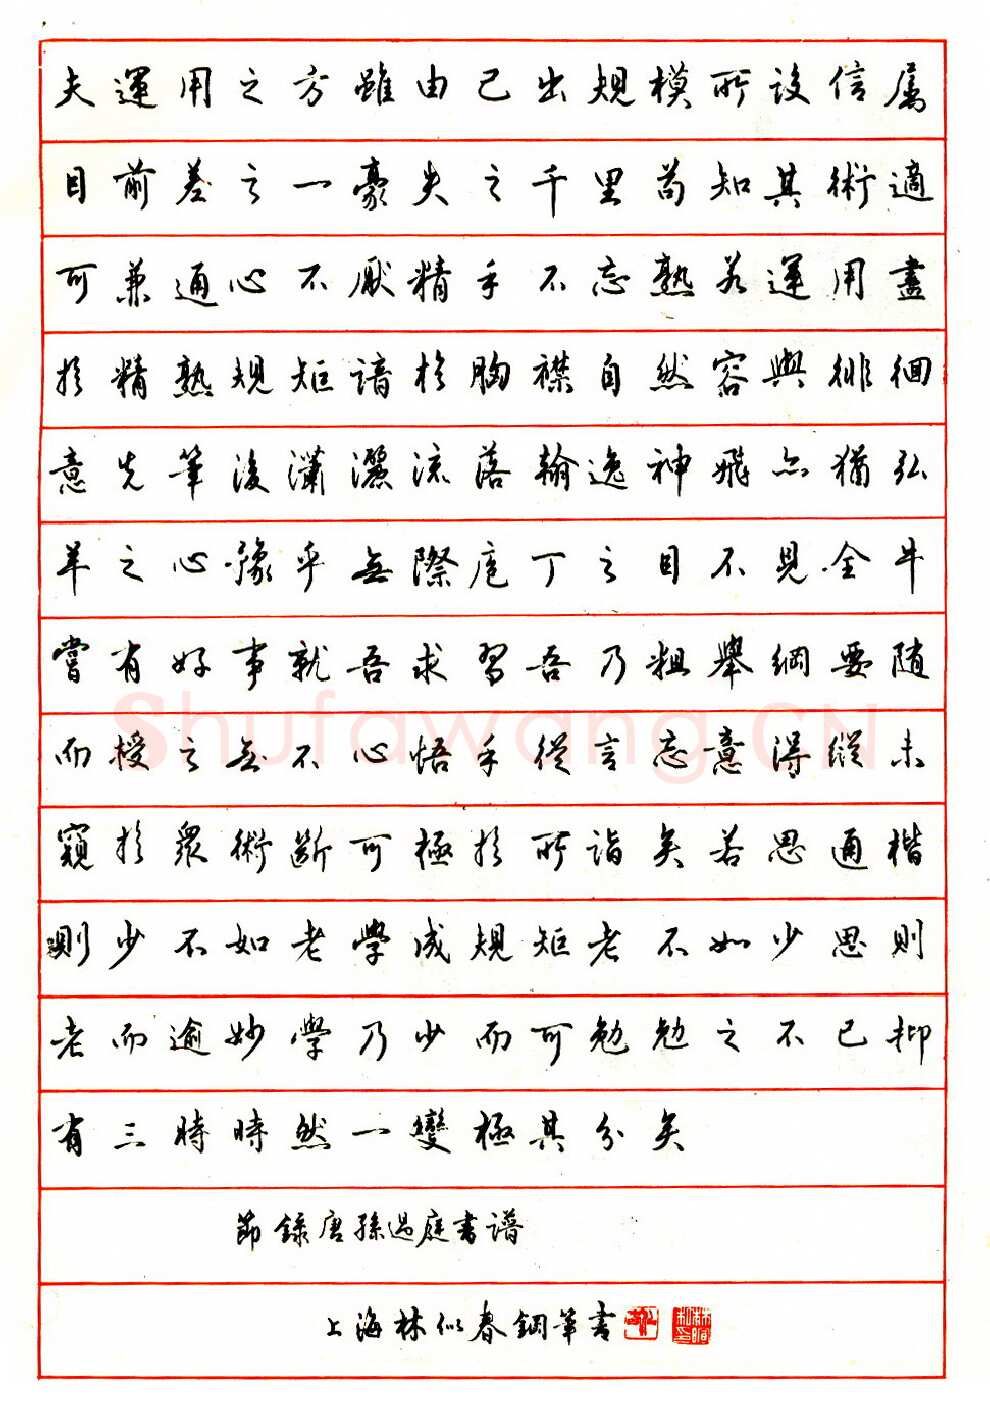 夫運用之方雖由己出規模所設信屬
目前差之一豪失之千里苟知其術適
可兼通心不厭精手不忘熟若運用盡
於精熟規矩諳於胸襟自然容與徘徊
意先筆後瀟灑流落翰逸神飛亦猶弘
羊之心豫乎無際庖丁之目不見全牛
嘗有好事就吾求習吾乃粗舉綱要随
而授之無不心悟手從言忘意得縱未
窺於眾術斷可極於所詣矣若思通楷
則少不如老學成規矩老不如少思則
老而逾妙學乃少而可勉勉之不已抑
有三時時然一變極其分矣
節録唐孫過庭書譜
上海林似春鋼筆書
Shufawang.CN